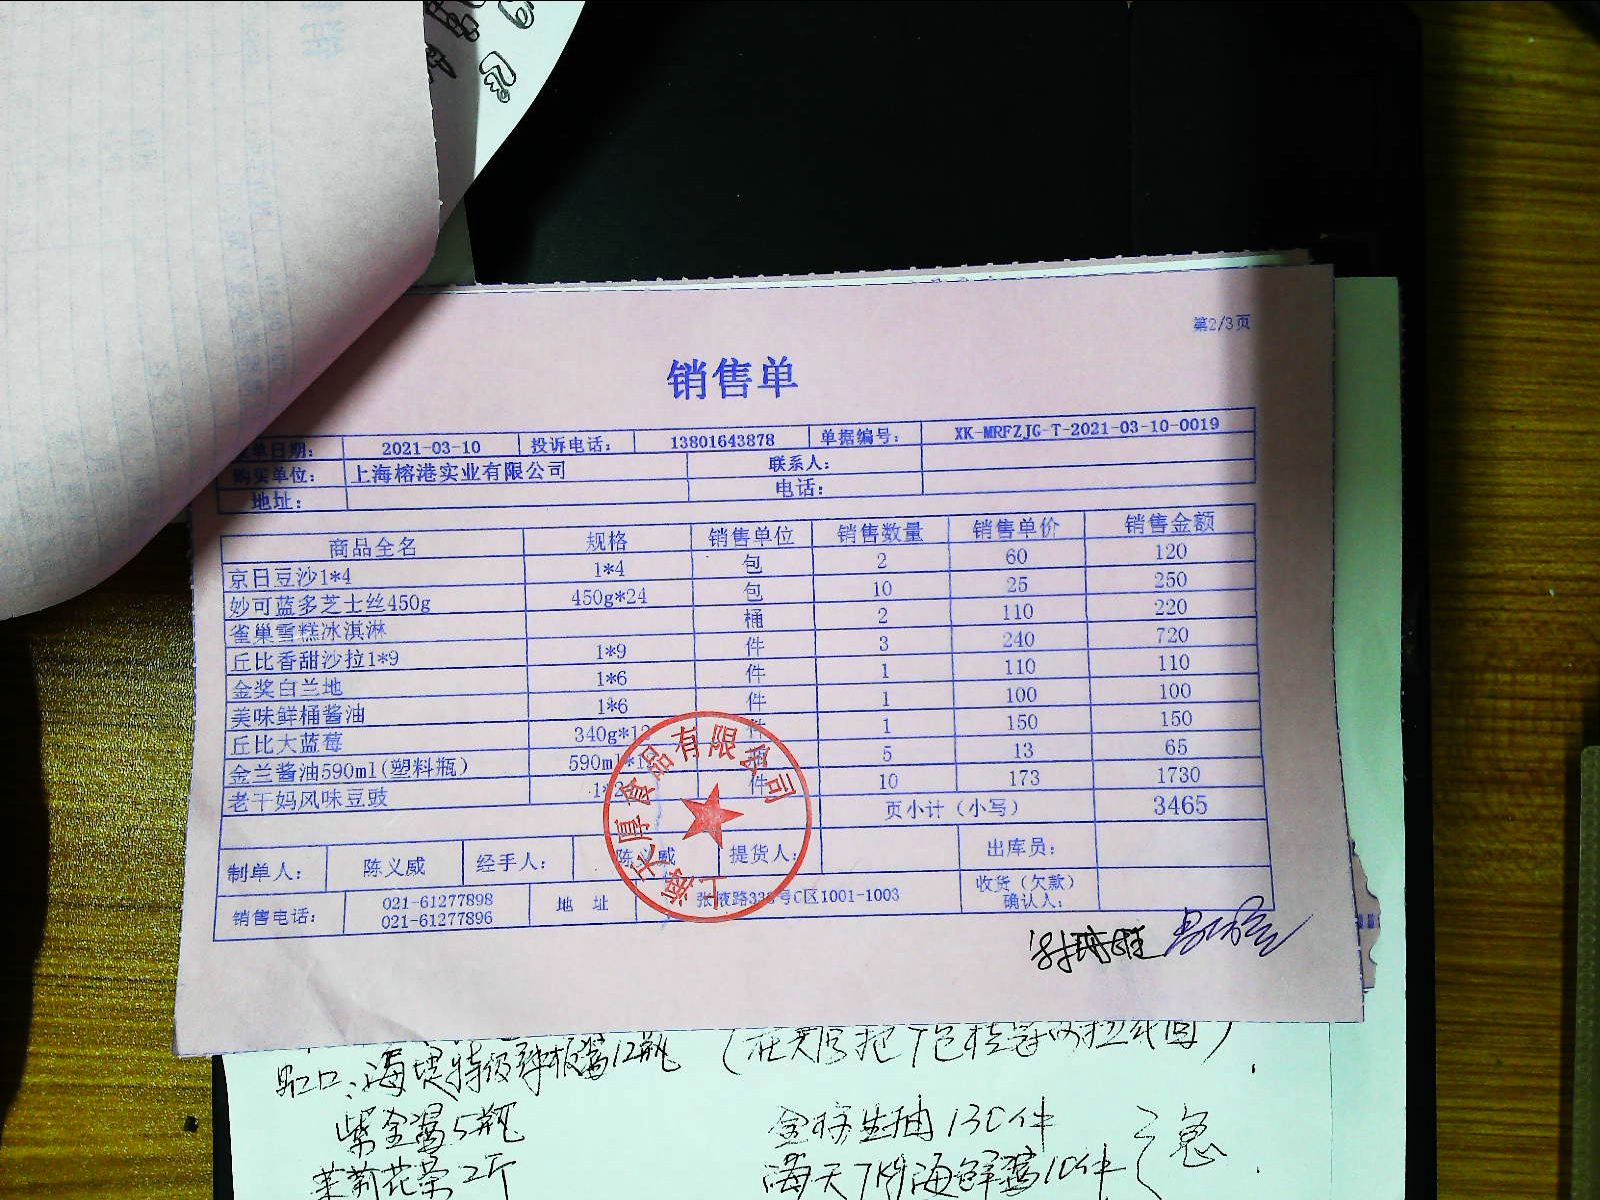 第2/3页
销售单
单日期： 2021-03-10 投诉电话： 13801643878 单据编号： XK-MRFZJG-T-2021-03-10-0019
购买单位： 上海榕港实业有限公司 联系人：
地址： 电话：
商品全名 规格 销售单位 销售数量 销售单价 销售金额
京日豆沙1*4 1*4 包 2 60 120
妙可蓝多芝士丝450g 450g*24 包 10 25 250
雀巢雪糕冰淇淋 桶 2 110 220
丘比香甜沙拉1*9 1*9 件 3 240 720
金奖白兰地 1*6 件 1 110 110
美味鲜桶酱油 1*6 件 1 100 100
丘比大蓝莓 340g*12 件 1 150 150
金兰酱油590ml(塑料瓶) 590ml*12 瓶 5 13 65
老干妈风味豆豉 件 10 173 1730
页小计（小写） 3465
制单人： 陈义威 经手人： 陈义威 提货人： 出库员：
销售电话： 021-61277898 021-61277896 地 址 张掖路33号C区1001-1003 收货（欠款）确认人：
食品有限公司
紫金酱5瓶 金标生抽130件 急
茉莉花茶2斤 海天7kg海鲜酱10件